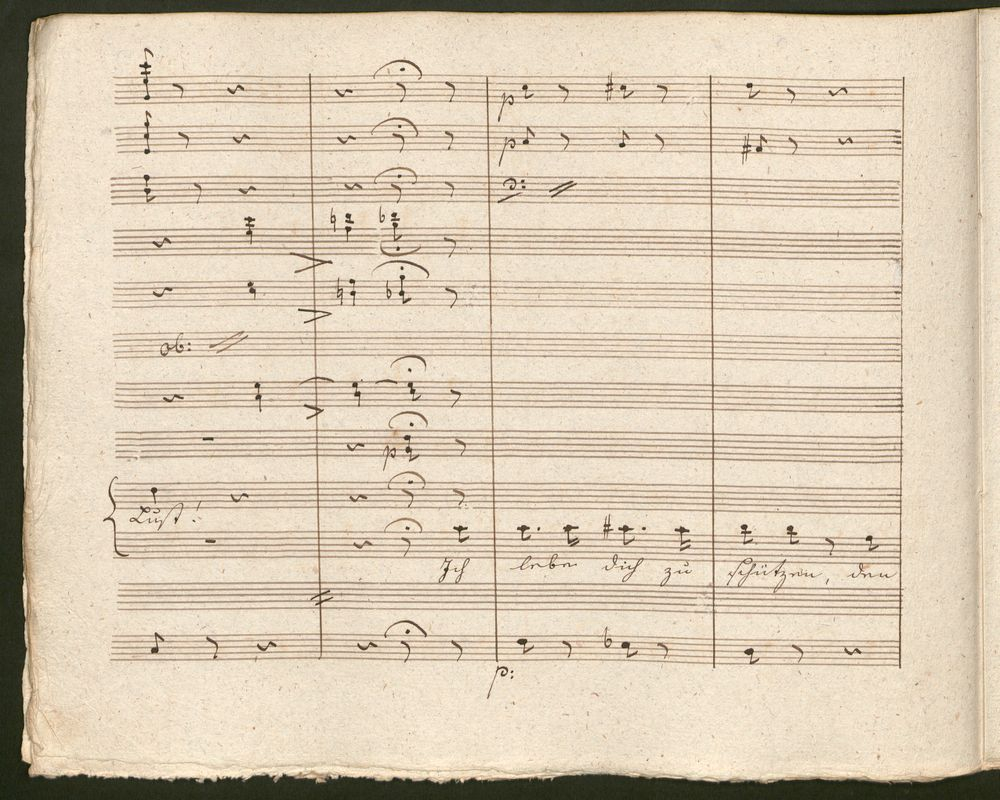 p
p
ob:
p
Lust!
Ich lebe dich zu schützen, den
p: